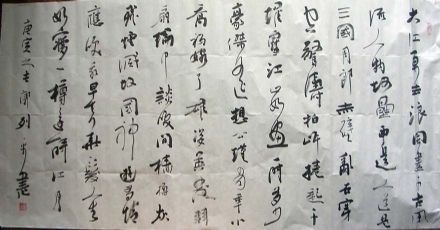 大江東去浪淘盡千古風
流人物故壘西邊人道是
三國周郎赤壁亂石穿
空驚濤拍岸捲起千
堆雪江山如畫一時多少
豪傑遙想公瑾當年小
喬初嫁了雄姿英發羽
扇綸巾談笑間檣櫓灰
飛煙滅故國神遊多情
應笑我早生華髮人生
如夢一樽還酹江月
庚寅之